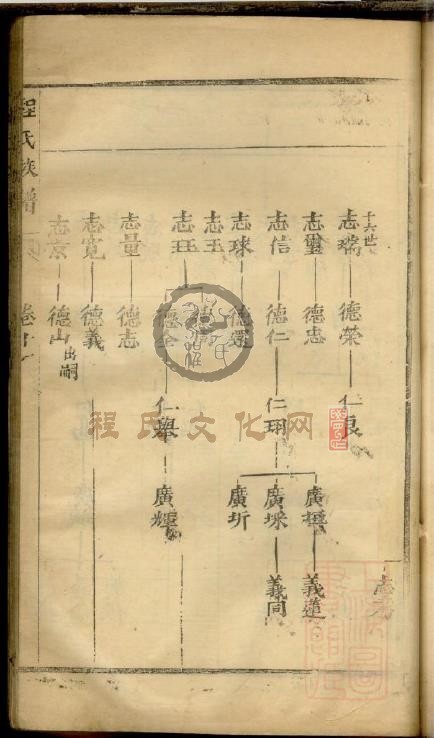 十六世
志瑞 德榮 仁
志璽 德忠
志信 德仁 仁珊 廣 義蓮
廣垛 義同
廣圻
志球 德還
志玉
志珏 德全 仁舉 廣輝
志量 德志
志寬 德義
志京 德山 出嗣
程氏族譜
程氏文化网